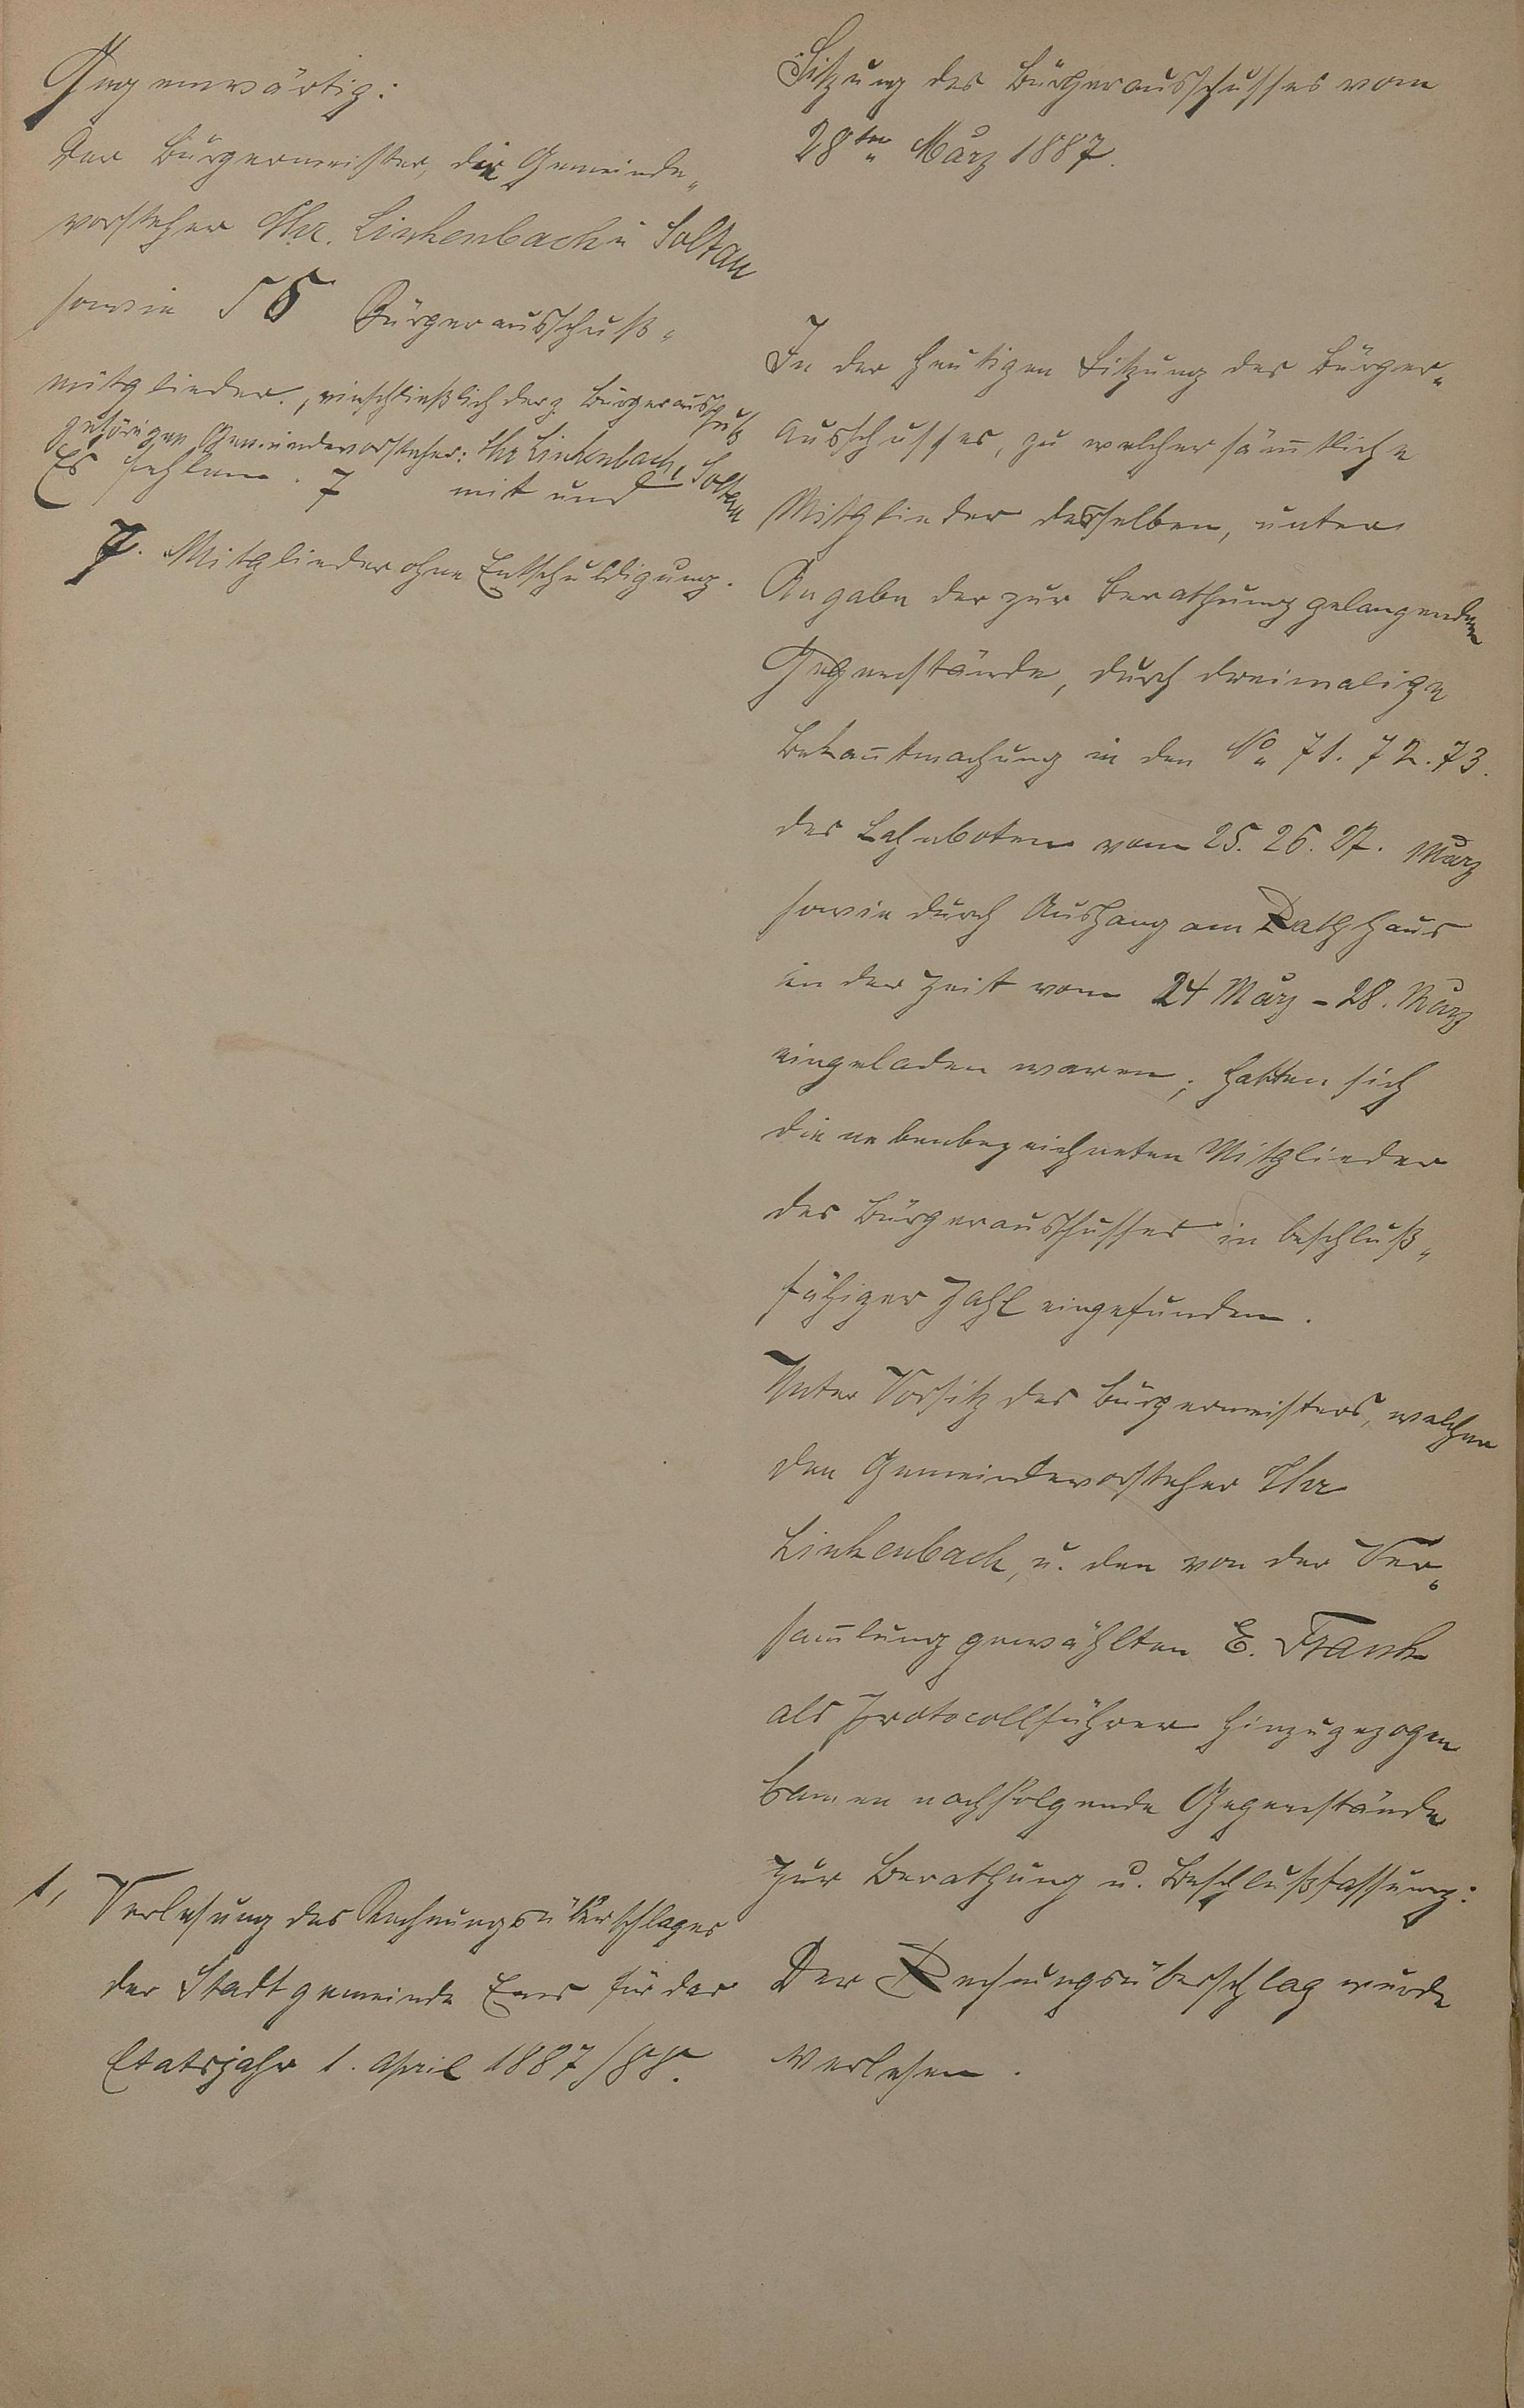 Gegenwärtig:
der Bürgermeister, die Gemeinde„
vorsteher Chr. Linkenbach u Soltau
sowie 55 Bürgerausschuß„
mitglieder, einschließlich der z. Bürgerausschuß
gehörigen Gemeindevorsteher: Chr Linkenbach, Soltau
Es fehlen 7 mit und
7. Mitglieder ohne Entschuldigung.
1, Verlesung des Rechnungsüberschlages
der Stadtgemeinde Ems für das
Etatsjahr 1. April 1887/88.
Sitzung des Bürgerausschusses vom
28ten März 1887.
In der heutigen Sitzung des Bürger„
ausschusses, zu welcher sämtliche
Mitglieder desselben, unter
Angabe der zur Berathung gelangenden
Gegenstände, durch dreimalige
Bekanntmachung in den No 71. 72. 73.
des Lahnboten vom 25. 26. 27. März
sowie durch Aushang am Rathhaus
in der Zeit vom 24 März - 28. März
eingeladen waren, hatten sich
die nebenbezeichneten Mitglieder
des Bürgerausschusses in beschluß„
fähiger Zahl eingefunden.
Unter Vorsitz des Bürgermeisters, welcher
den Gemeindevorsteher Chr
Linkenbach, u. den von der Ver„
sam̄lung gewählten E. Frank
als Protocollführer hinzugezogen
kamen nachfolgende Gegenstände
zur Berathung u. Beschlußfassung:
Der Rechnungsüberschlag wurde
verlesen.